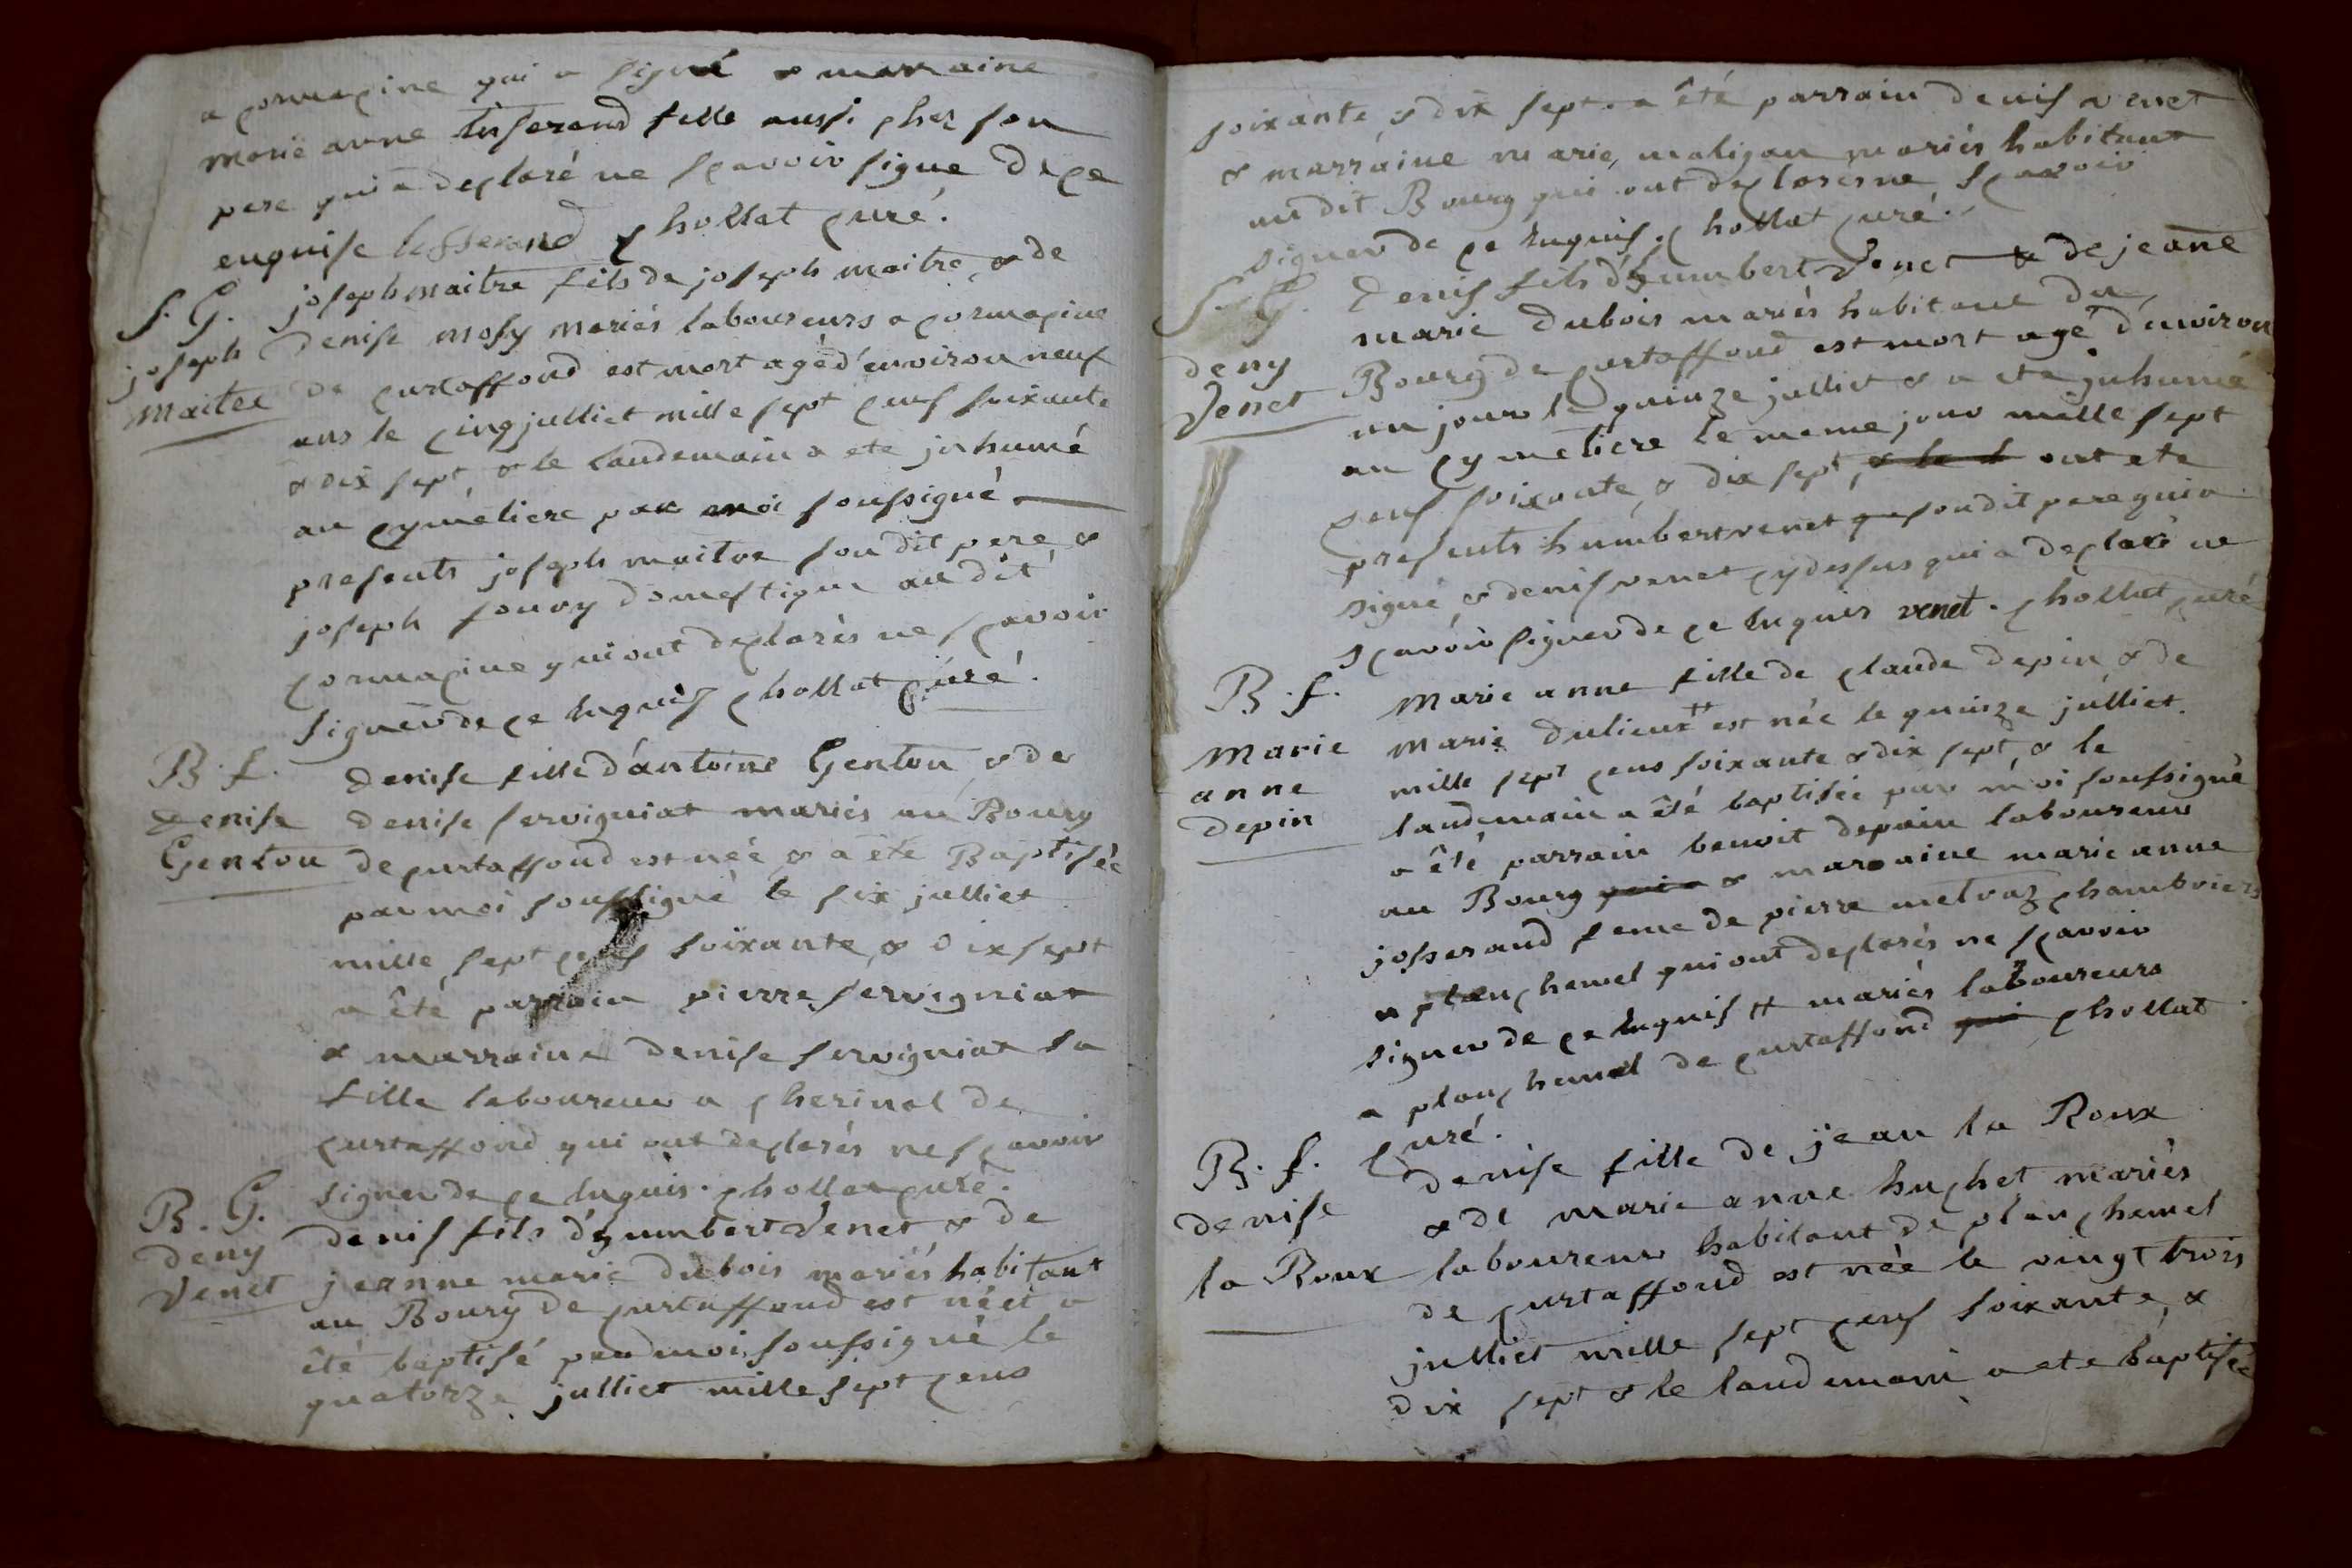 a cormacine qui a signé & marraine
marie anne luserand fille aussi chez son
pere qui a declaré ne scavoir signe de ce
enquise lesserand chollat curé.
S. G. joseph maitre fils de joseph maitre & de
joseph denise mosy mariés laboureurs a cormacine
Maitre de curtaffond est mort agé d'environ neuf
ans le cinq julliet mille sept cens soixante
& dix sept, & le landemain a ete jnhumé
au cymetiere par moi soussigné
presents joseph maitre son dit pere &
joseph fouvy domestique au dit
cormacine qui ont declarés ne scavoir
signer de ce enquis chollat curé.
B. f. denise fille d'antoine Genton & de
denise denise servigniat mariés au Bourg
Genton de curtaffond est née & a été Baptisée
par moi soussigné le six julliet
mille sept cens soixante & dix sept
a été parrain pierre servigniat
& marraine denise servigniat sa
fille laboureur a cherinal de
curtaffond qui ont declarés ne scavoir
signer de ce enquis. chollat curé.
B. G. denis fils d'humbert Venet & de
deny jeanne marie dubois mariés habitant
Venet au Bourg de curtaffond est né et a
été baptisé par moi soussigné le
quatorze julliet mille sept cens
soixante & dix sept. a été parrain denis venet
& marraine marie maligau mariés habitant
au dit Bourg qui ont declarés ne scavoir
signer de ce enquis. chollat curé.
S. G. denis fils d'humbert Venet & de jeane
deny marie dubois mariés habitant du
Venet Bourg de curtaffond est mort agé d'environ
un jour le quinze julliet & a ete jnhumé
au cymetiere le meme jour mille sept
cens soixante & dix sept & le l ont ete
presents humbert venet son dit pere qui a
signé & denis venet cy dessus qui a declaré ne
scavoir signer de ce enquis venet. chollat curé
B. f. Marie anne fille de claude depin & de
Marie Marie dulieux # est née le quinze julliet
anne mille sept cens soixante & dix sept, & le
depin landemain a été baptisée par moi soussigné
a été parrain benoit depain laboureur
au Bourg qui a & maraine marie anne
josserand feme de pierre melvaz chambriers
a planchemel qui ont declarés ne scavoir
signer de ce enquis # mariés laboureurs
a planchemel de curtaffond qui chollat
curé.
B. f. denise fille de jean la Roux
denise & de marie anne huchet mariés
la Roux laboureur habitant de planchemel
de curtaffond est née le vingt trois
julliet mille sept cens soixante &
dix sept & le landemain a ete baptisée